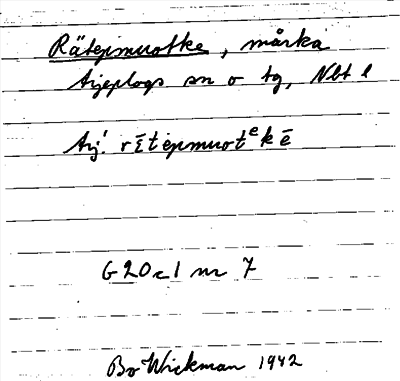 Rätepmuotke, mårka
Arjeplogs sn o tg, Nbt l
Arj. rī̭tepmuotᵉkē
G20c1 nr 7
Bo Wickman 1942